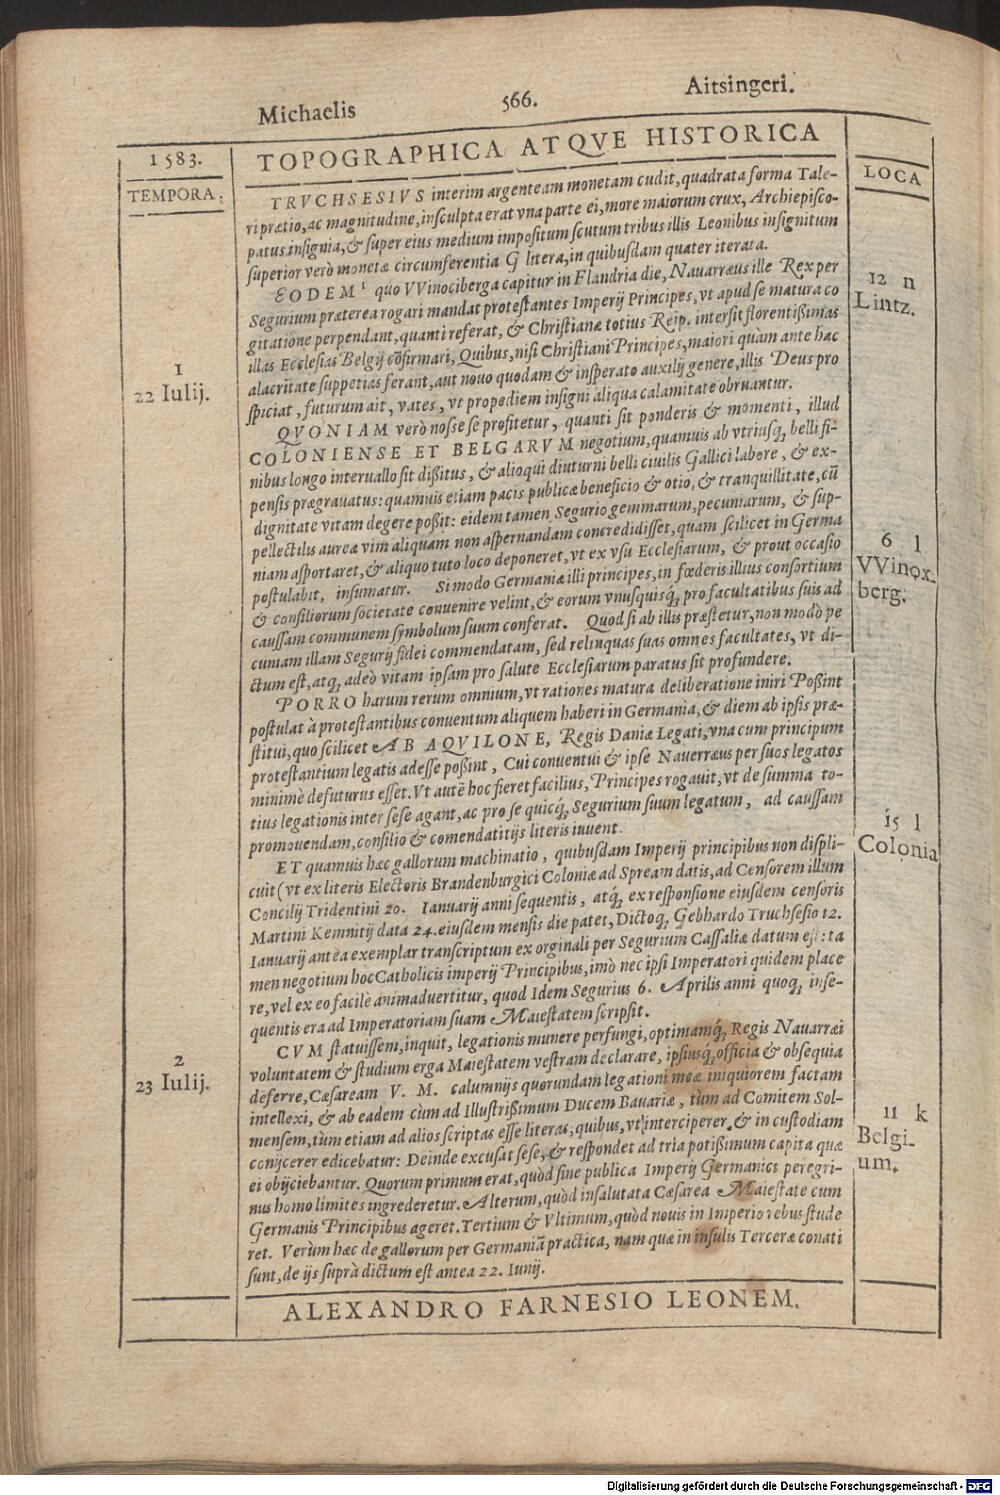 Michaelis 566. Aitsingeri.
1583. TOPOGRAPHICA ATQVE HISTORICA
TEMPORA: LOCA
TRVCHSESIVS interim argenteam monetam cudit, quadrata forma Tale-
ri prætio, ac magnitudine, insculpta erat vna parte ei, more maiorum crux, Archiepisco-
patus insignia, & super eius medium impositum scutum tribus illis Leonibus insignitum
superior verò monetæ circumferentia G litera, in quibusdam quater iterata.
EODEM¹ quo VVinociberga capitur in Flandria die, Nauarræus ille Rex per
Segurium præterea rogari mandat protestantes Imperij Principes, vt apud se matura co
gitatione perpendant, quanti referat, & Christianæ totius Reip. intersit florentißimas
illas Ecclesias Belgij cõfirmari, Quibus, nisi Christiani Principes, maiori quàm ante hac
alacritate suppetias ferant, aut nouo quodam & insperato auxilij genere, illis Deus pro
spiciat, futurum ait, vates, vt propediem insigni aliqua calamitate obruantur.
QVONIAM verò nosse se profitetur, quanti sit ponderis & momenti, illud
COLONIENSE ET BELGARVM negotium, quamuis ab vtriusq́; belli fi-
nibus longo interuallo sit dißitus, & alioqui diuturni belli ciuilis Gallici labore, & ex-
pensis prægrauatus: quamuis etiam pacis publicæ beneficio & otio, & tranquillitate, cũ
dignitate vitam degere poßit: eidem tamen Segurio gemmarum, pecuniarum, & sup-
pellectilis aureæ vim aliquam non aspernandam concredidisset, quam scilicet in Germa
niam asportaret, & aliquo tuto loco deponeret, vt ex vsu Ecclesiarum, & prout occasio
postulabit, insumatur. Si modo Germaniæ illi principes, in fœderis illius consortium
& consiliorum societate conuenire velint, & eorum vnusquisq́; pro facultatibus suis ad
caussam communem symbolum suum conferat. Quod si ab illis præstetur, non modò pe
cuniam illam Segurij fidei commendatam, sed relinquas suas omnes facultates, vt di-
ctum est, atq; adeò vitam ipsam pro salute Ecclesiarum paratus sit profundere.
PORRO harum rerum omnium, vt rationes matura deliberatione iniri Poßint
postulat à protestantibus conuentum aliquem haberi in Germania, & diem ab ipsis præ-
stitui, quo scilicet AB AQVILONE, Regis Daniæ Legati, vna cum principum
protestantium legatis adesse poßint, Cui conuentui & ipse Nauerræus per suos legatos
minimè defuturus esset. Vt autẽ hoc fieret facilius, Principes rogauit, vt de summa to-
tius legationis inter sese agant, ac pro se quicq́; Segurium suum legatum, ad caussam
promouendam, consilio & comendatitijs literis iuuent.
ET quamuis hæc gallorum machinatio, quibusdam Imperij principibus non displi-
cuit (vt ex literis Electoris Brandenburgici Coloniæ ad Spream datis, ad Censorem illum
Concilij Tridentini 20. Ianuarij anni sequentis, atq́; ex responsione eiusdem censoris
Martini Kemnitij data 24. eiusdem mensis die patet, Dictoq; Gebhardo Truchsesio 12.
Ianuarij antea exemplar transcriptum ex orginali per Segurium Cassaliæ datum est: ta
men negotium hoc Catholicis imperij Principibus, imò nec ipsi Imperatori quidem place
re, vel ex eo facilè animaduertitur, quod Idem Segurius 6. Aprilis anni quoq; inse-
quentis era ad Imperatoriam suam Maiestatem scripsit.
CVM statuissem, inquit, legationis munere perfungi, optimamq́; Regis Nauarræi
voluntatem & studium erga Maiestatem vestram declarare, ipsiusq́; officia & obsequia
deferre, Cæsaream V. M. calumnijs quorundam legationi meæ iniquiorem factam
intellexi, & ab eadem cùm ad Illustrißimum Ducem Bauariæ, tùm ad Comitem Sol-
mensem, tùm etiam ad alios scriptas esse literas, quibus, vt interciperer, & in custodiam
conijcerer edicebatur: Deinde excusat sese, & respondet ad tria potißimum capita quæ
ei obijciebantur. Quorum primum erat, quòd sine publica Imperij Germanici peregri-
nus homo limites ingrederetur. Alterum, quòd insalutata Cæsarea Maiestate cum
Germanis Principibus ageret. Tertium & Vltimum, quòd nouis in Imperio rebus stude
ret. Verùm hæc de gallorum per Germaniã practica, nam quæ in insulis Terceræ conati
sunt, de ijs suprà dictum est antea 22. Iunij.
ALEXANDRO FARNESIO LEONEM.
1
22 Iulij.
2
23 Iulij.
12 n
Lintz.
6 l
VVinox-
berg.
15 l
Colonia
11 k
Belgi-
um.
Digitalisierung gefördert durch die Deutsche Forschungsgemeinschaft - DFG